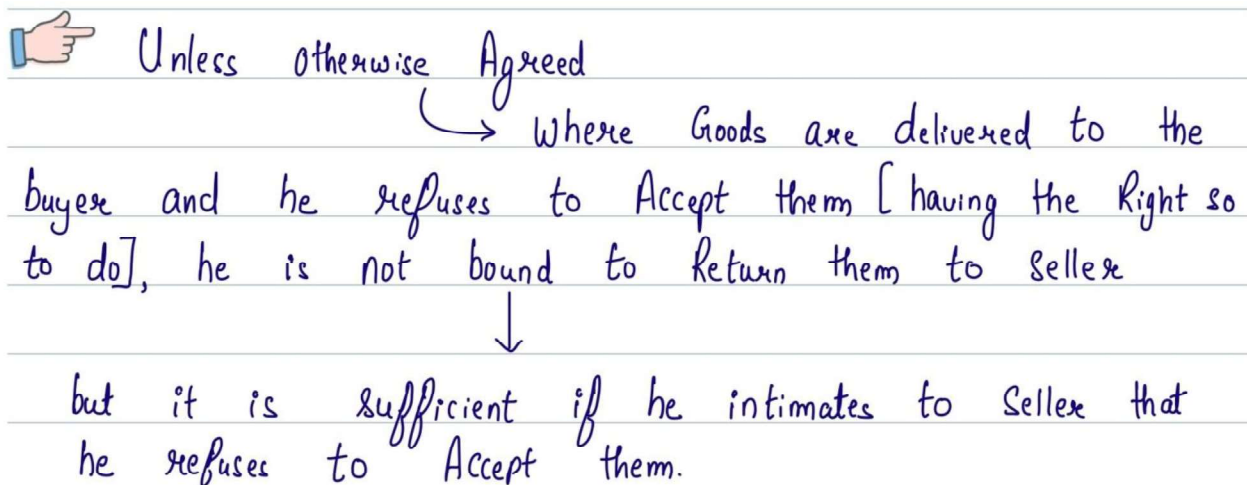 Unless otherwise Agreed
Where Goods are delivered to the
buyer and he refuses to Accept them [having the Right so
to do], he is not bound to Return them to Seller
but it is sufficient if he intimates to Seller that
he refuses to Accept them.